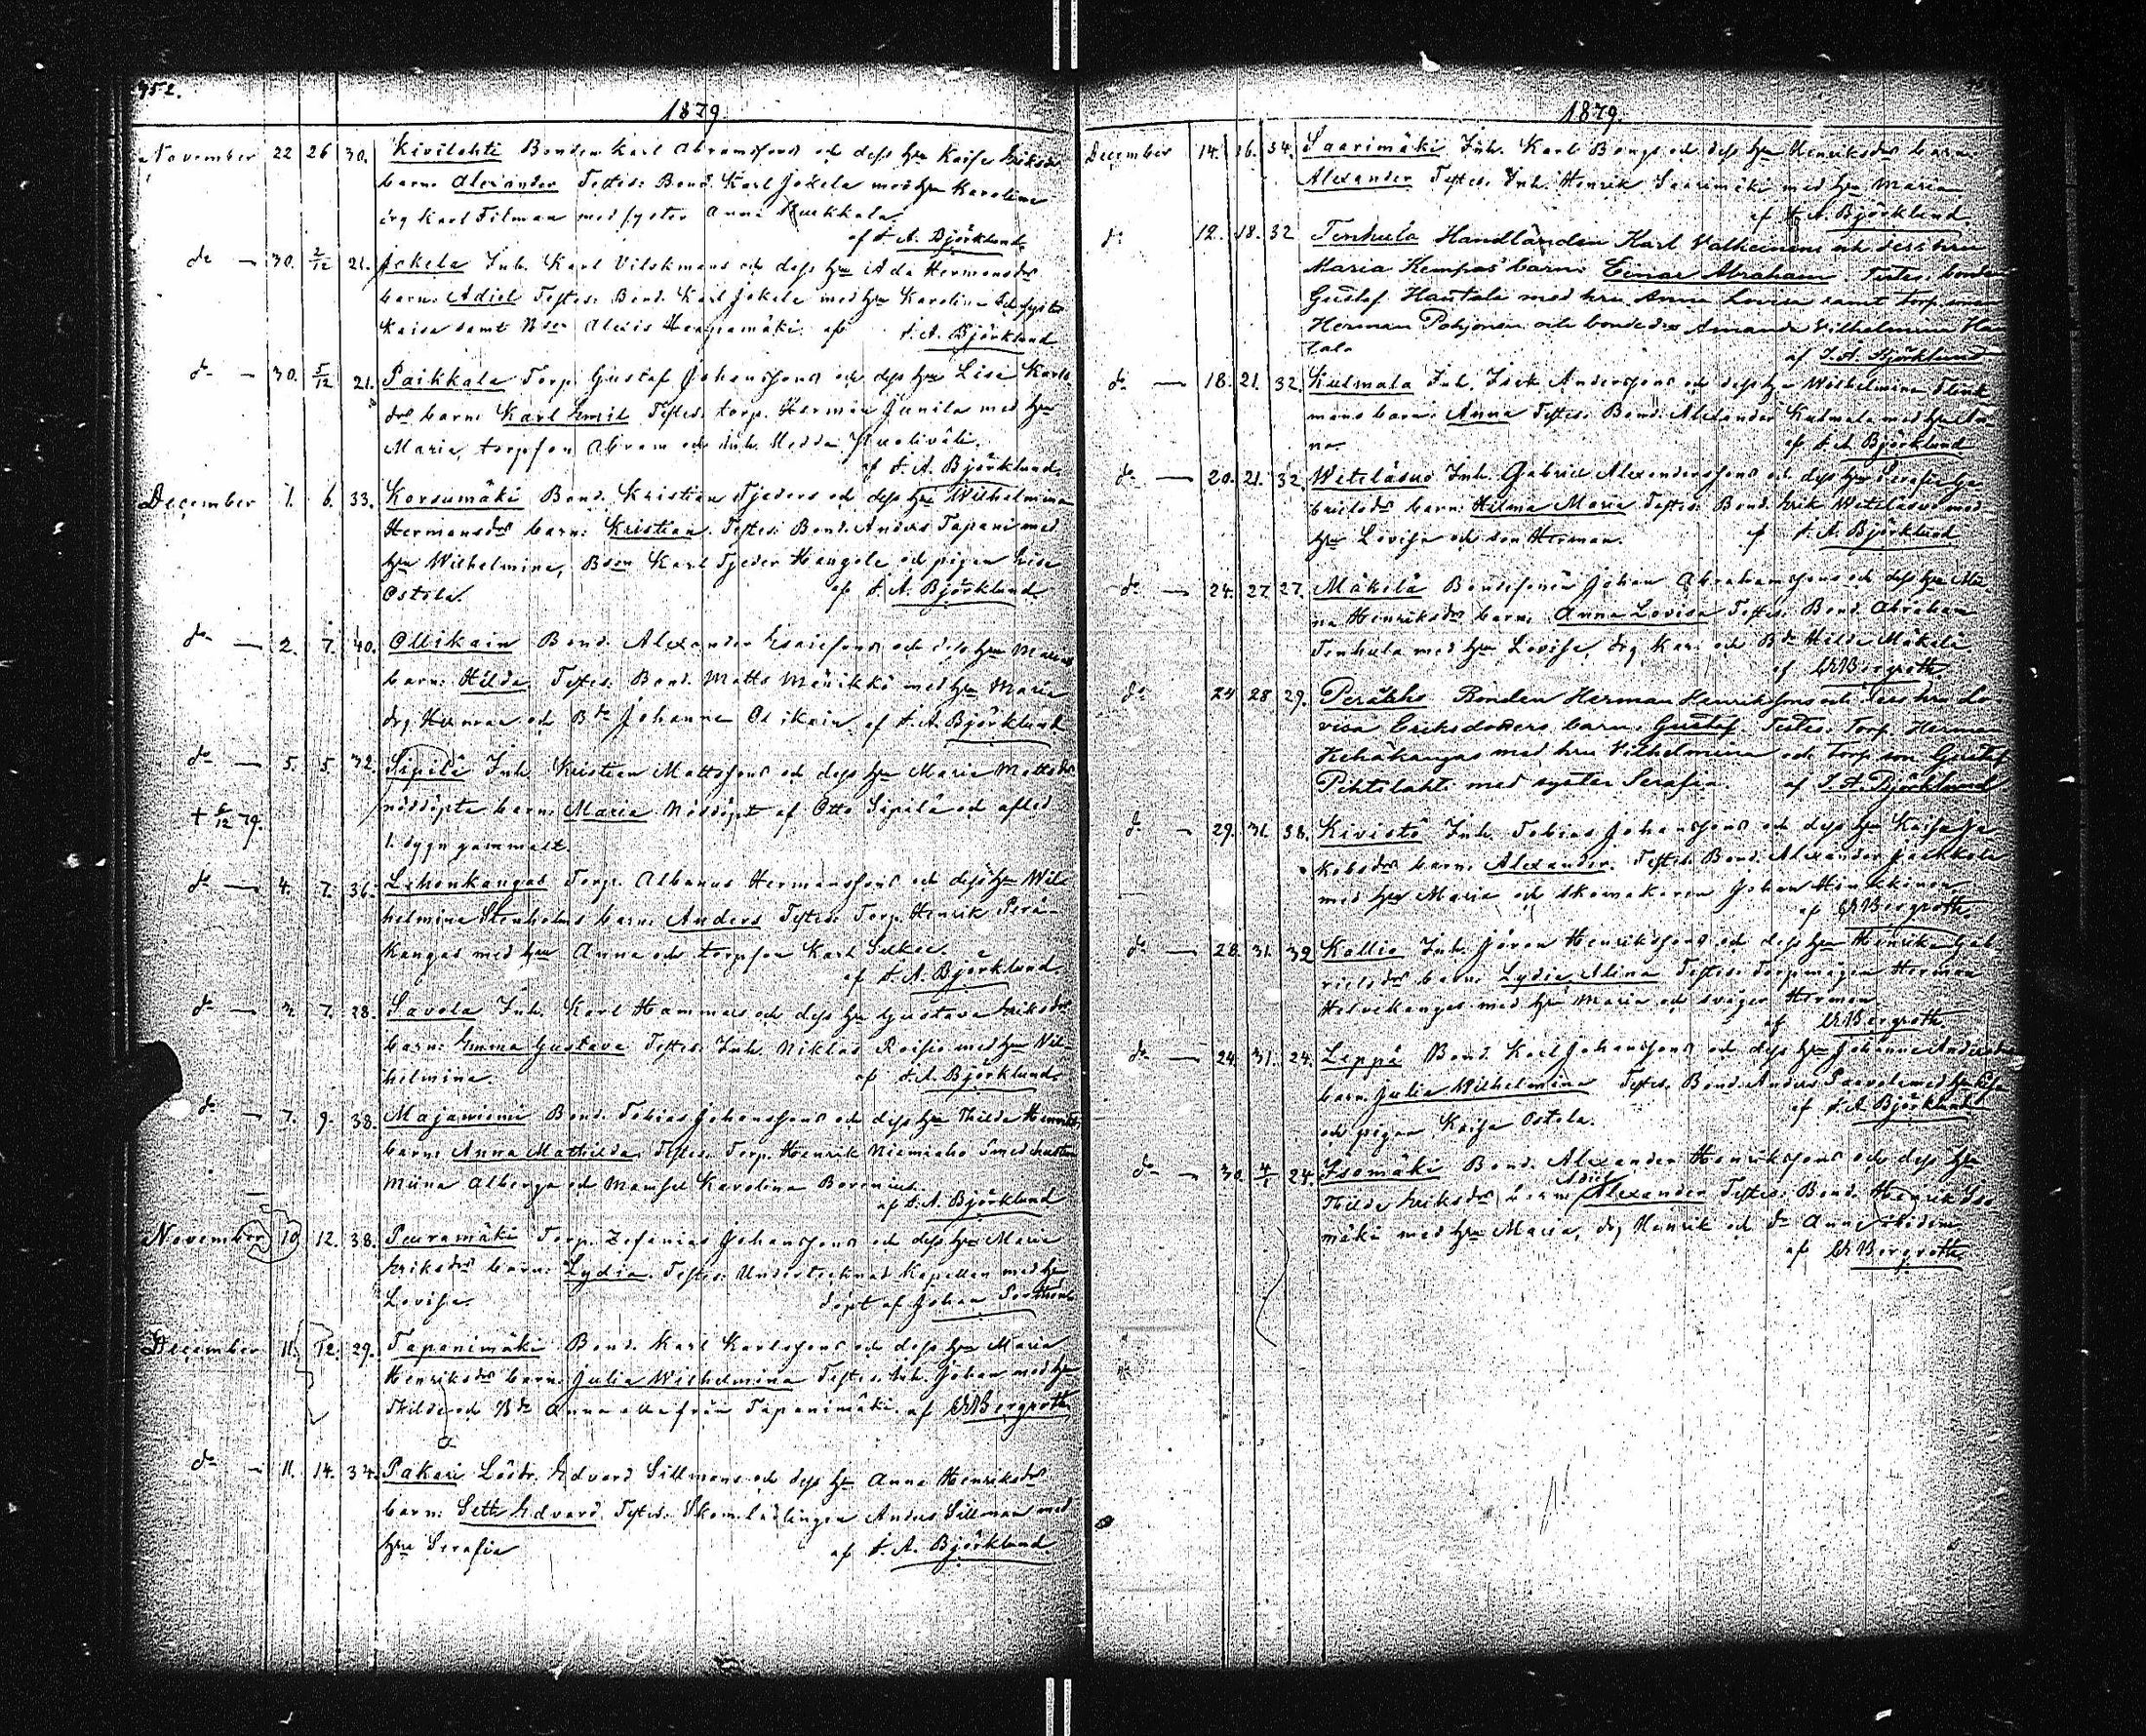 452.
1879.
November 22 26 30. Kivilahti Bonden Karl Abramssons och dess hu Kaisa Eriksdrs
barn: Alexander Testes: Bond. Karl Jokela med hu Karolina
drg Karl Tilman med syster Anna
af F. A. Björklund.
do — 30. 2/12 21. Jokela Inh. Karl Vilskmans och dess hu Ada Hermansdrs
barn: Adiel Testes: Bond. Karl Jokela med hu Karolina och syster
Kaisa samt Bson Alexis af F. A. Björklund
do — 30. 5/12 21. Paikkala Torp. Gustaf Johanssons och dess hu Lisa Karls
drs barn: Karl Emil Testes: torp. Herman Junila med hu
Maria, torpson Abram och inh. Hedda
af F. A. Björklund
December 1. 6. 33. Korsumäki Bond. Kristian Tjeders och dess hu Wilhelmina
Hermansdrs barn: Kristian. Testes: Bond. Anders Tapani med
hu Wilhelmina, Bson Karl Tjeder Hangola och pigan Lisa
Ostola. af F. A. Björklund
do — 2. 7. 40. Ollikain Bond. Alexander Esaiesons och dess hu Marias
barn: Hilda Testes: Bond. Matts Männikkö med hu Maria
drg Herman och Bdr Johanna Olikain. af F. A. Björklund
do — 5. 5. 32. Sipilä Inh. Kristian Mattssons och dess hu Maria Mattsdrs
+ 6/12 79. nöddöpta barn: Maria Nöddöpt af Otto Sipilä och afled
1. dygn gammalt.
do — 4. 7. 36. Lehonkangas Torp. Albanus Hermanssons och dess hu Wil-
helmina Stenholms barn: Anders Testes: Torp. Henrik Perä-
kangas med hu Anna och torpson Karl
af F. A. Björklund
do — 3. 7. 28. Savola Inh. Karl Hammars och dess hu Gustava Eriksdrs
barn: Emma Gustava Testes: Inh. Niklas Roisio med hu Vil-
helmina. af F. A. Björklund
do — 7. 9. 38. Majaniemi Bond. Tobias Johanssons och dess hu Thilda Henriksdrs
barn: Anna Mathilda Testes: Torp. Henrik Niemiaho Smedhustru
Miina Alberga och Mamsel Karolina Borenius.
af F. A. Björklund
November 10 12. 38. Peuramäki Torp. Zefanias Johanssons och dess hu Maria
Eriksdrs barn: Lydia. Testes: Undertecknad Kapellan med hu
Lovisa. döpt af Johan
December 11. 12. 29. Tapanimäki Bond. Karl Karlssons och dess hu Maria
Henriksdrs barn: Julia Wilhelmina Testes: inh. Johan med hu
Thilda och Bdr Anna alla från Tapanimäki. af Bergroth
do — 11. 14. 34. Pakari Lösdr. Edvard Sillmans och dess hu Anna Henriksdrs
barn: Seth Edvard. Testes: Skom.lärlingen Anders Sillman med
hu Serafia af F. A. Björklund
1879.
December 14. 16. 34. Saarimäki Inh. Karl Bengs och dess hu Henriksdrs barn
Alexander Testes: Inh. Henrik Saarimäki med hu Maria
af F. A. Björklund
do 12. 18. 32 Tenhula Handlanden Karl Valheinens och dess hru
Maria Kempas barn: Einar Abraham. Testes: bonden
Gustaf Hautala med hru Anna Lovisa samt torp. son
Herman Pohjonen och bondedr Amanda Vilhelmina Hau
tala af F. A. Björklund
do — 18. 21. 32. Kulmala Inh. Isak Anderssons och dess hu Wilhelmina Flink
mans barn: Anna Testes: Bond. Alexander Kulmala med hu An-
na. af F. A. Björklund
do — 20. 21. 32. Weteläsuo Inh. Gabriel Alexanderssons och dess hu Serafia Ga
brielsdrs barn: Hilma Maria Testes: Bond. Erik Weteläsuo med
hu Lovisa och son Herman. af F. A. Björklund
do — 24. 27. 27. Mäkelä Bondesonen Johan Abrahamssons och dess hu Mii
na Henriksdrs barn: Anna Lovisa Testes: Bond. Abraham
Tenhula med hu Lovisa, drg Karl och Bdr Hilda Mäkelä
af Bergroth
do 24 28 29. Peräkko Bonden Herman Henrikssons och dess hru Lo
visa Eriksdotters barn: Gustaf Testes: Torp. Herman
Kehäkangas med hru Vilhelmina och torp. son Gustaf
Pihtilahti med syster Serafia. af F. A. Björklund
do — 29. 31. 38. Kivistö Inh. Tobias Johanssons och dess hu Kaisa Ja
kobsdrs barn: Alexander. Testes: Bond. Alexander Jaakkola
med hu Maria och skomakaren Johan Hinkkinen
af Bergroth
do — 28. 31. 39 Kallio Inh. Jöran Henrikssons och dess hu Henrika Gab
rielsdrs barn: Lydia Alina Testes: Torpmågen Herman
med hu Maria och svåger Herman.
af Bergroth
do — 24. 31. 24. Leppä Bond. Karl Johanssons och dess hu Johanna Andersdrs
barn: Julia Wilhelmina Testes: Bond. Anders Paavola med hu Lisa
och pigan Kaisa Ostola. af F. A. Björklund
do — 30. 4/1 24. Isomäki Bond. Alexander Henrikssons och dess hu
Thilda Eriksdrs barn: Alexander Testes: Bond. Henrik Iso-
mäki med hu Maria, drg Henrik och dr Anna ibidem
af Bergroth